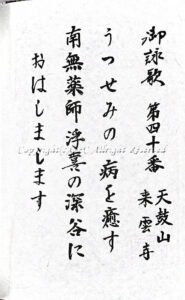 御詠歌 第四十番 天鼓山
来雲寺
うつせみの病を癒す
南無薬師淨喜の深谷に
おはしまします
Copyright All Right Reserved